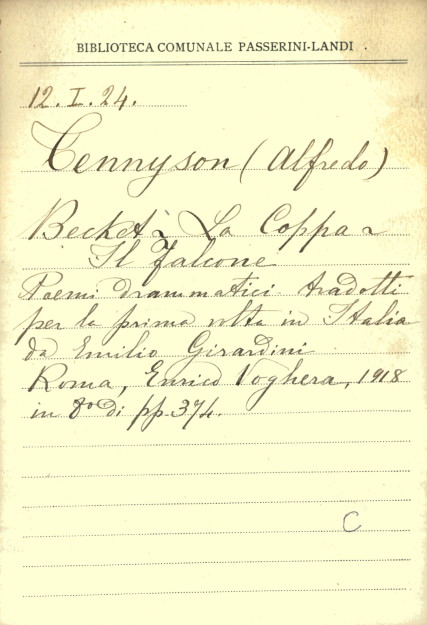 BIBLIOTECA COMUNALE PASSERINI-LANDI.
12.I.24.
Tennyson (Alfredo)
Becket ~ La Coppa ~
Il Falcone
Poemi drammatici tradotti
per la prima volta in Italia
da Emilio Girardini
Roma, Enrico Voghera, 1918
in 8º di pp. 374.
C